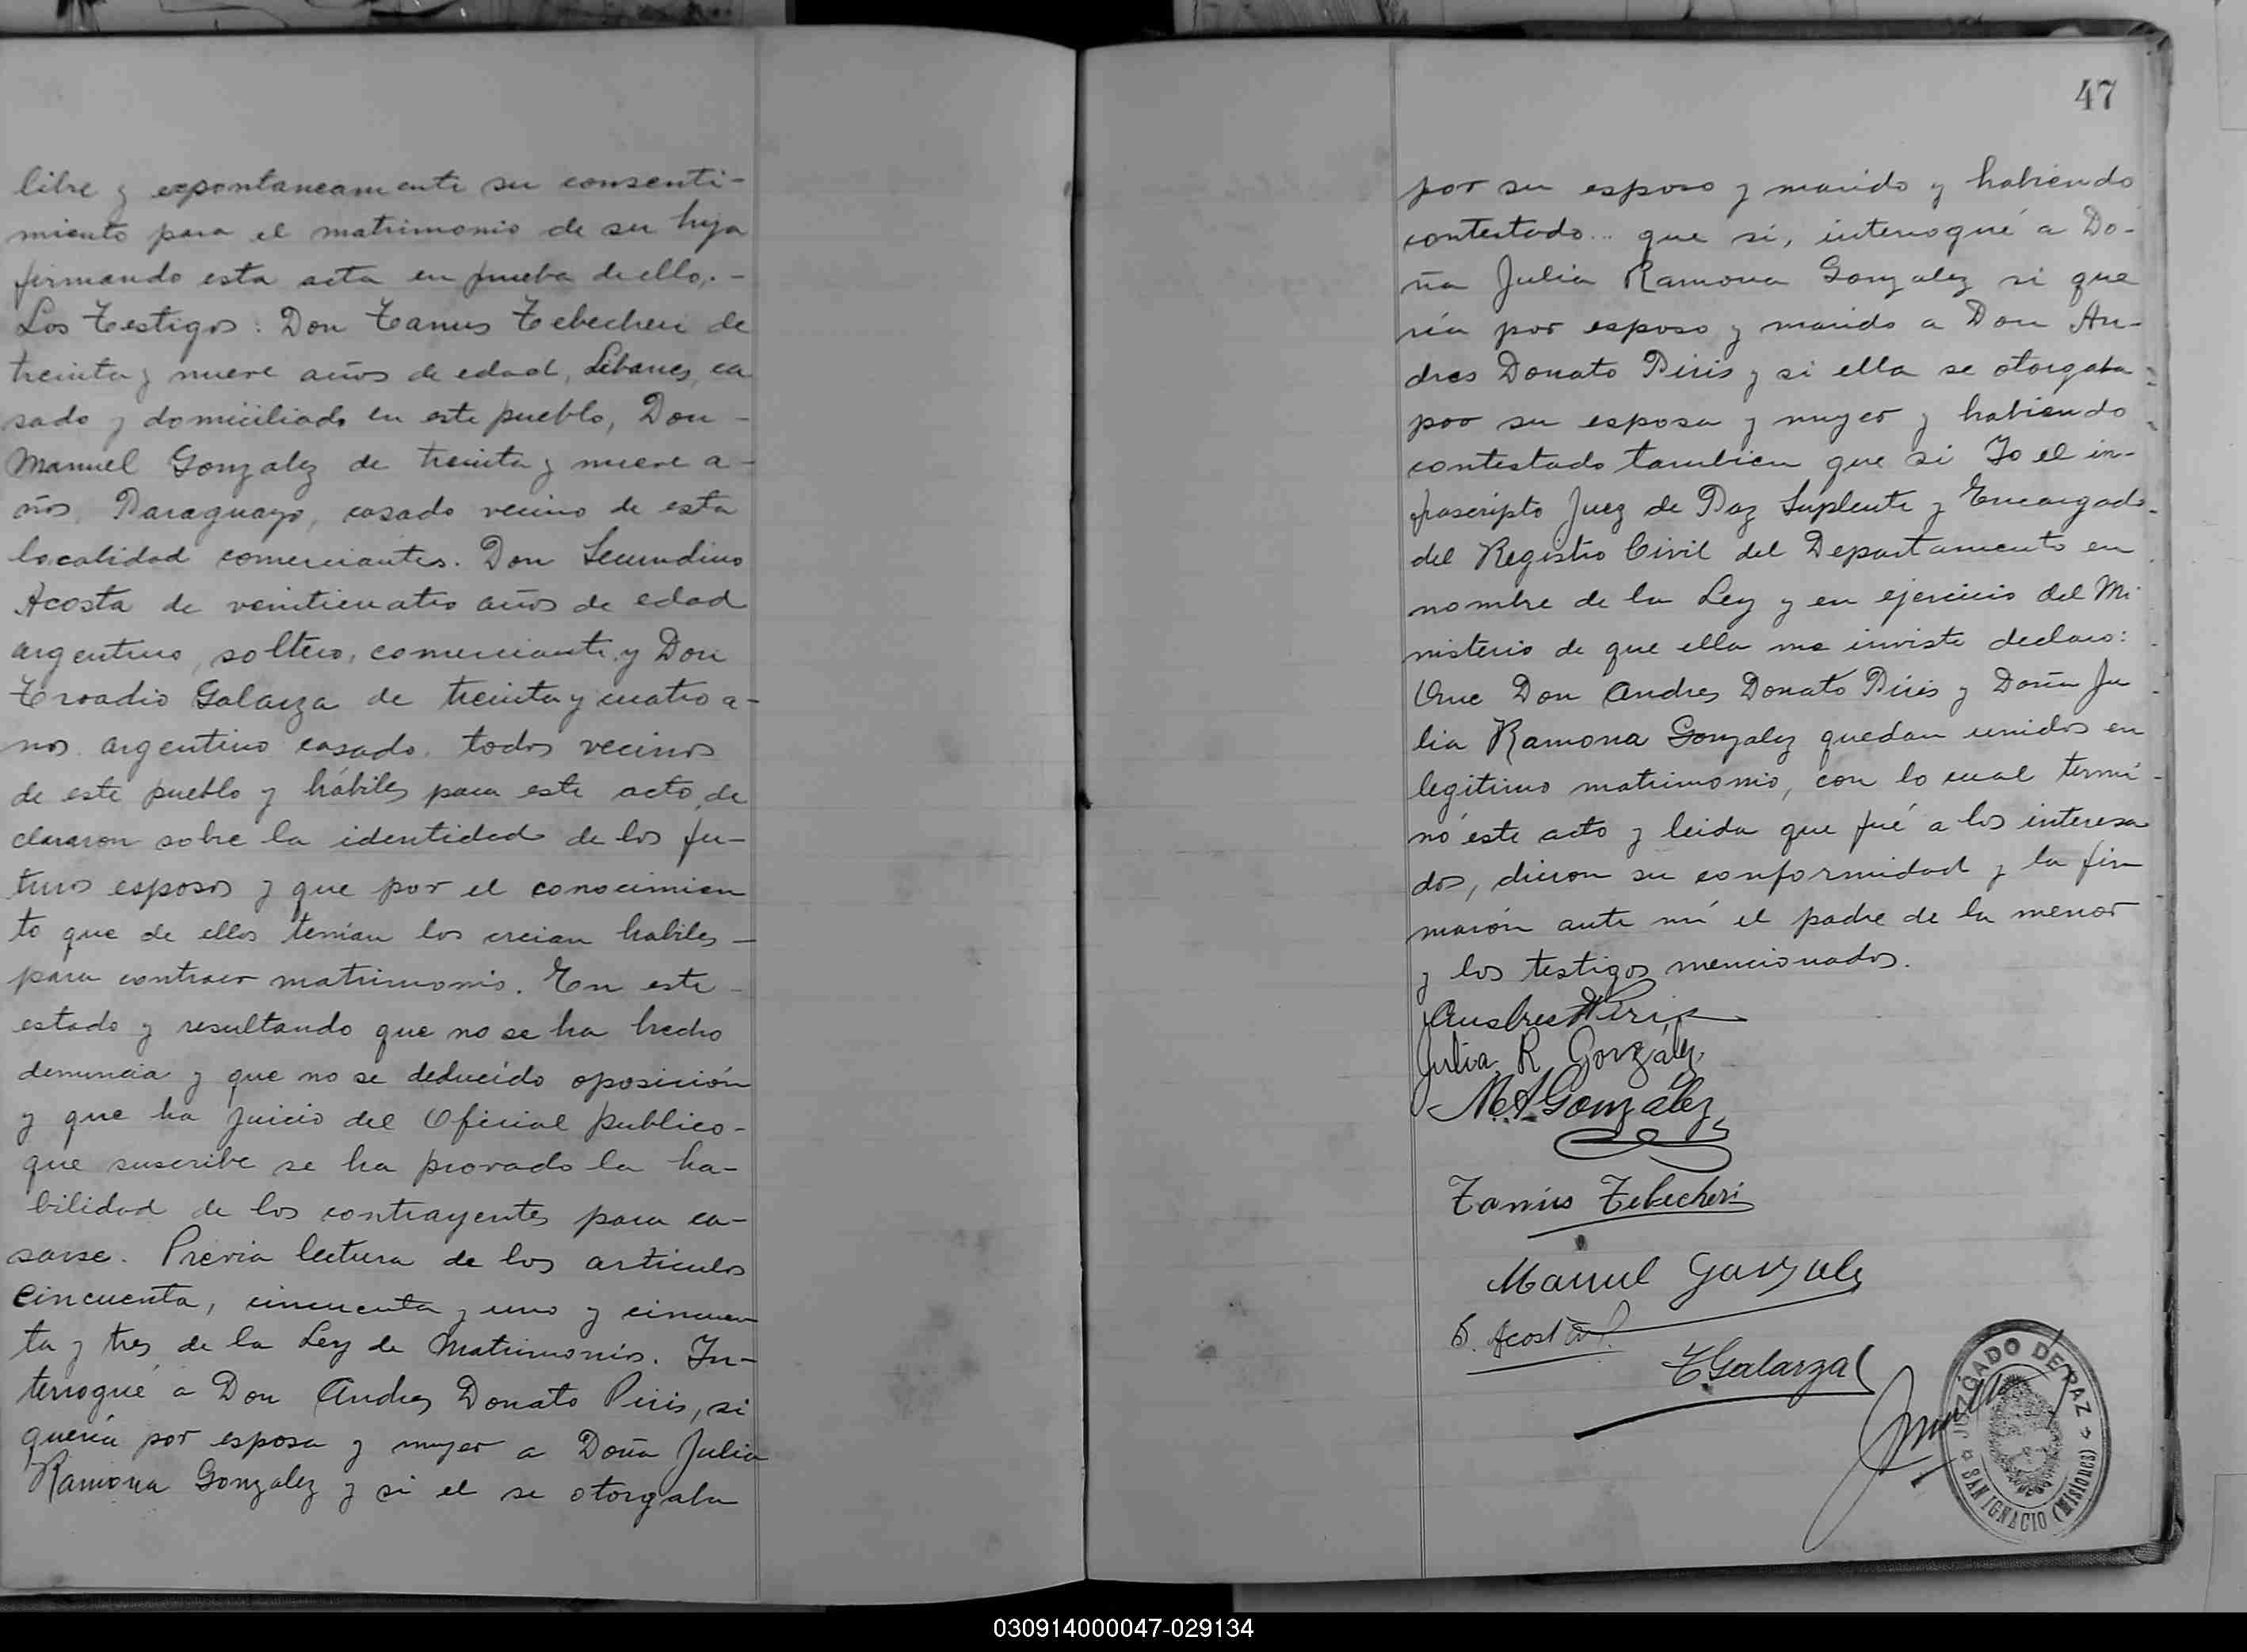 libre y expontaneamente su consenti-
miento para el matrimonio de su hija
firmando esta acta en prueba de ello.-
Los Testigos: Don Tanus Tebecheri de
treinta y nueve años de edad, Libanes, ca
sado y domiciliado en este pueblo, Don -
Manuel Gonzalez de treinta y nueve a-
ños, Paraguayo, casado vecino de esta
localidad comerciantes. Don Secundino
Acosta de veinticuatro años de edad
argentino, soltero, comerciante y Don
Troadio Galarza de treinta y cuatro a-
nos argentino casado. todos vecinos
de este pueblo y hábiles para este acto, de
clararon sobre la identidad de los fu-
turos esposos y que por el conocimien
to que de ellos tenían los creian habiles -
para contraer matrimonio. En este -
estado y resultando que no se ha hecho
denuncia y que no se deducído oposición
y que ha juicio del Oficial publico -
que suscribe se ha provado la ha-
bilidad de los contrayentes para ca-
sarse. Previa lectura de los articulos
cincuenta, cincuenta y uno y cincuen
ta y tres de la Ley de Matrimonio. In-
terrogué a Don Andres Donato Piris, si
quería por esposa y mujer a Doña Julia
Ramona Gonzalez y si el se otorgaba
47
por su esposo y marido y habiendo
contestado... que si, interrogué a Do-
ña Julia Ramona Gonzalez si que
ría por esposo y marido a Don An-
dres Donato Piris y si ella se otorgaba
por su esposa y mujer y habiendo
contestado tambien que si Yo el in-
frascripto Juez de Paz Suplente y Encargado
del Registro Civil del Departamento en
nombre de la Ley y en ejercicio del Mi
nisterio de que ella me inviste declaro:
Que Don Andres Donato Piris y Doña Ju
lia Ramona Gonzalez quedan unidos en
legitimo matrimonio, con lo cual termi-
nó este acto y leida que fué a los interesa
dos, dieron su conformidad y la fir
marón ante mí el padre de la menor
y los testigos mencionados.
Andres Piris
Julia R González
M.A. González
Tanús Tebecheri
Manuel Gonzalez
S. Acosta
T Galarza
JUZGADO DE PAZ
SAN IGNACIO (Misiones)
030914000047-029134